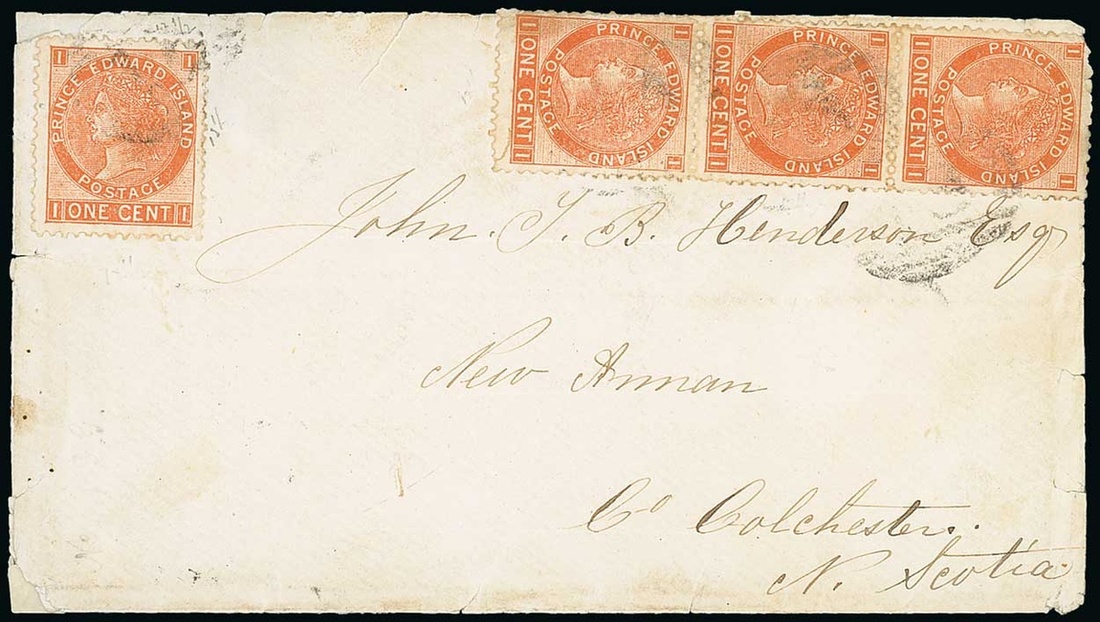 1 1
PRINCE EDWARD ISLAND
POSTAGE
1 ONE CENT 1
1 1
PRINCE EDWARD ISLAND
POSTAGE
1 ONE CENT 1
1 1
PRINCE EDWARD ISLAND
POSTAGE
1 ONE CENT 1
1 1
PRINCE EDWARD ISLAND
POSTAGE
1 ONE CENT 1
John. T. B. Henderson Esqr
New Annan
Co Colchester.
N. Scotia